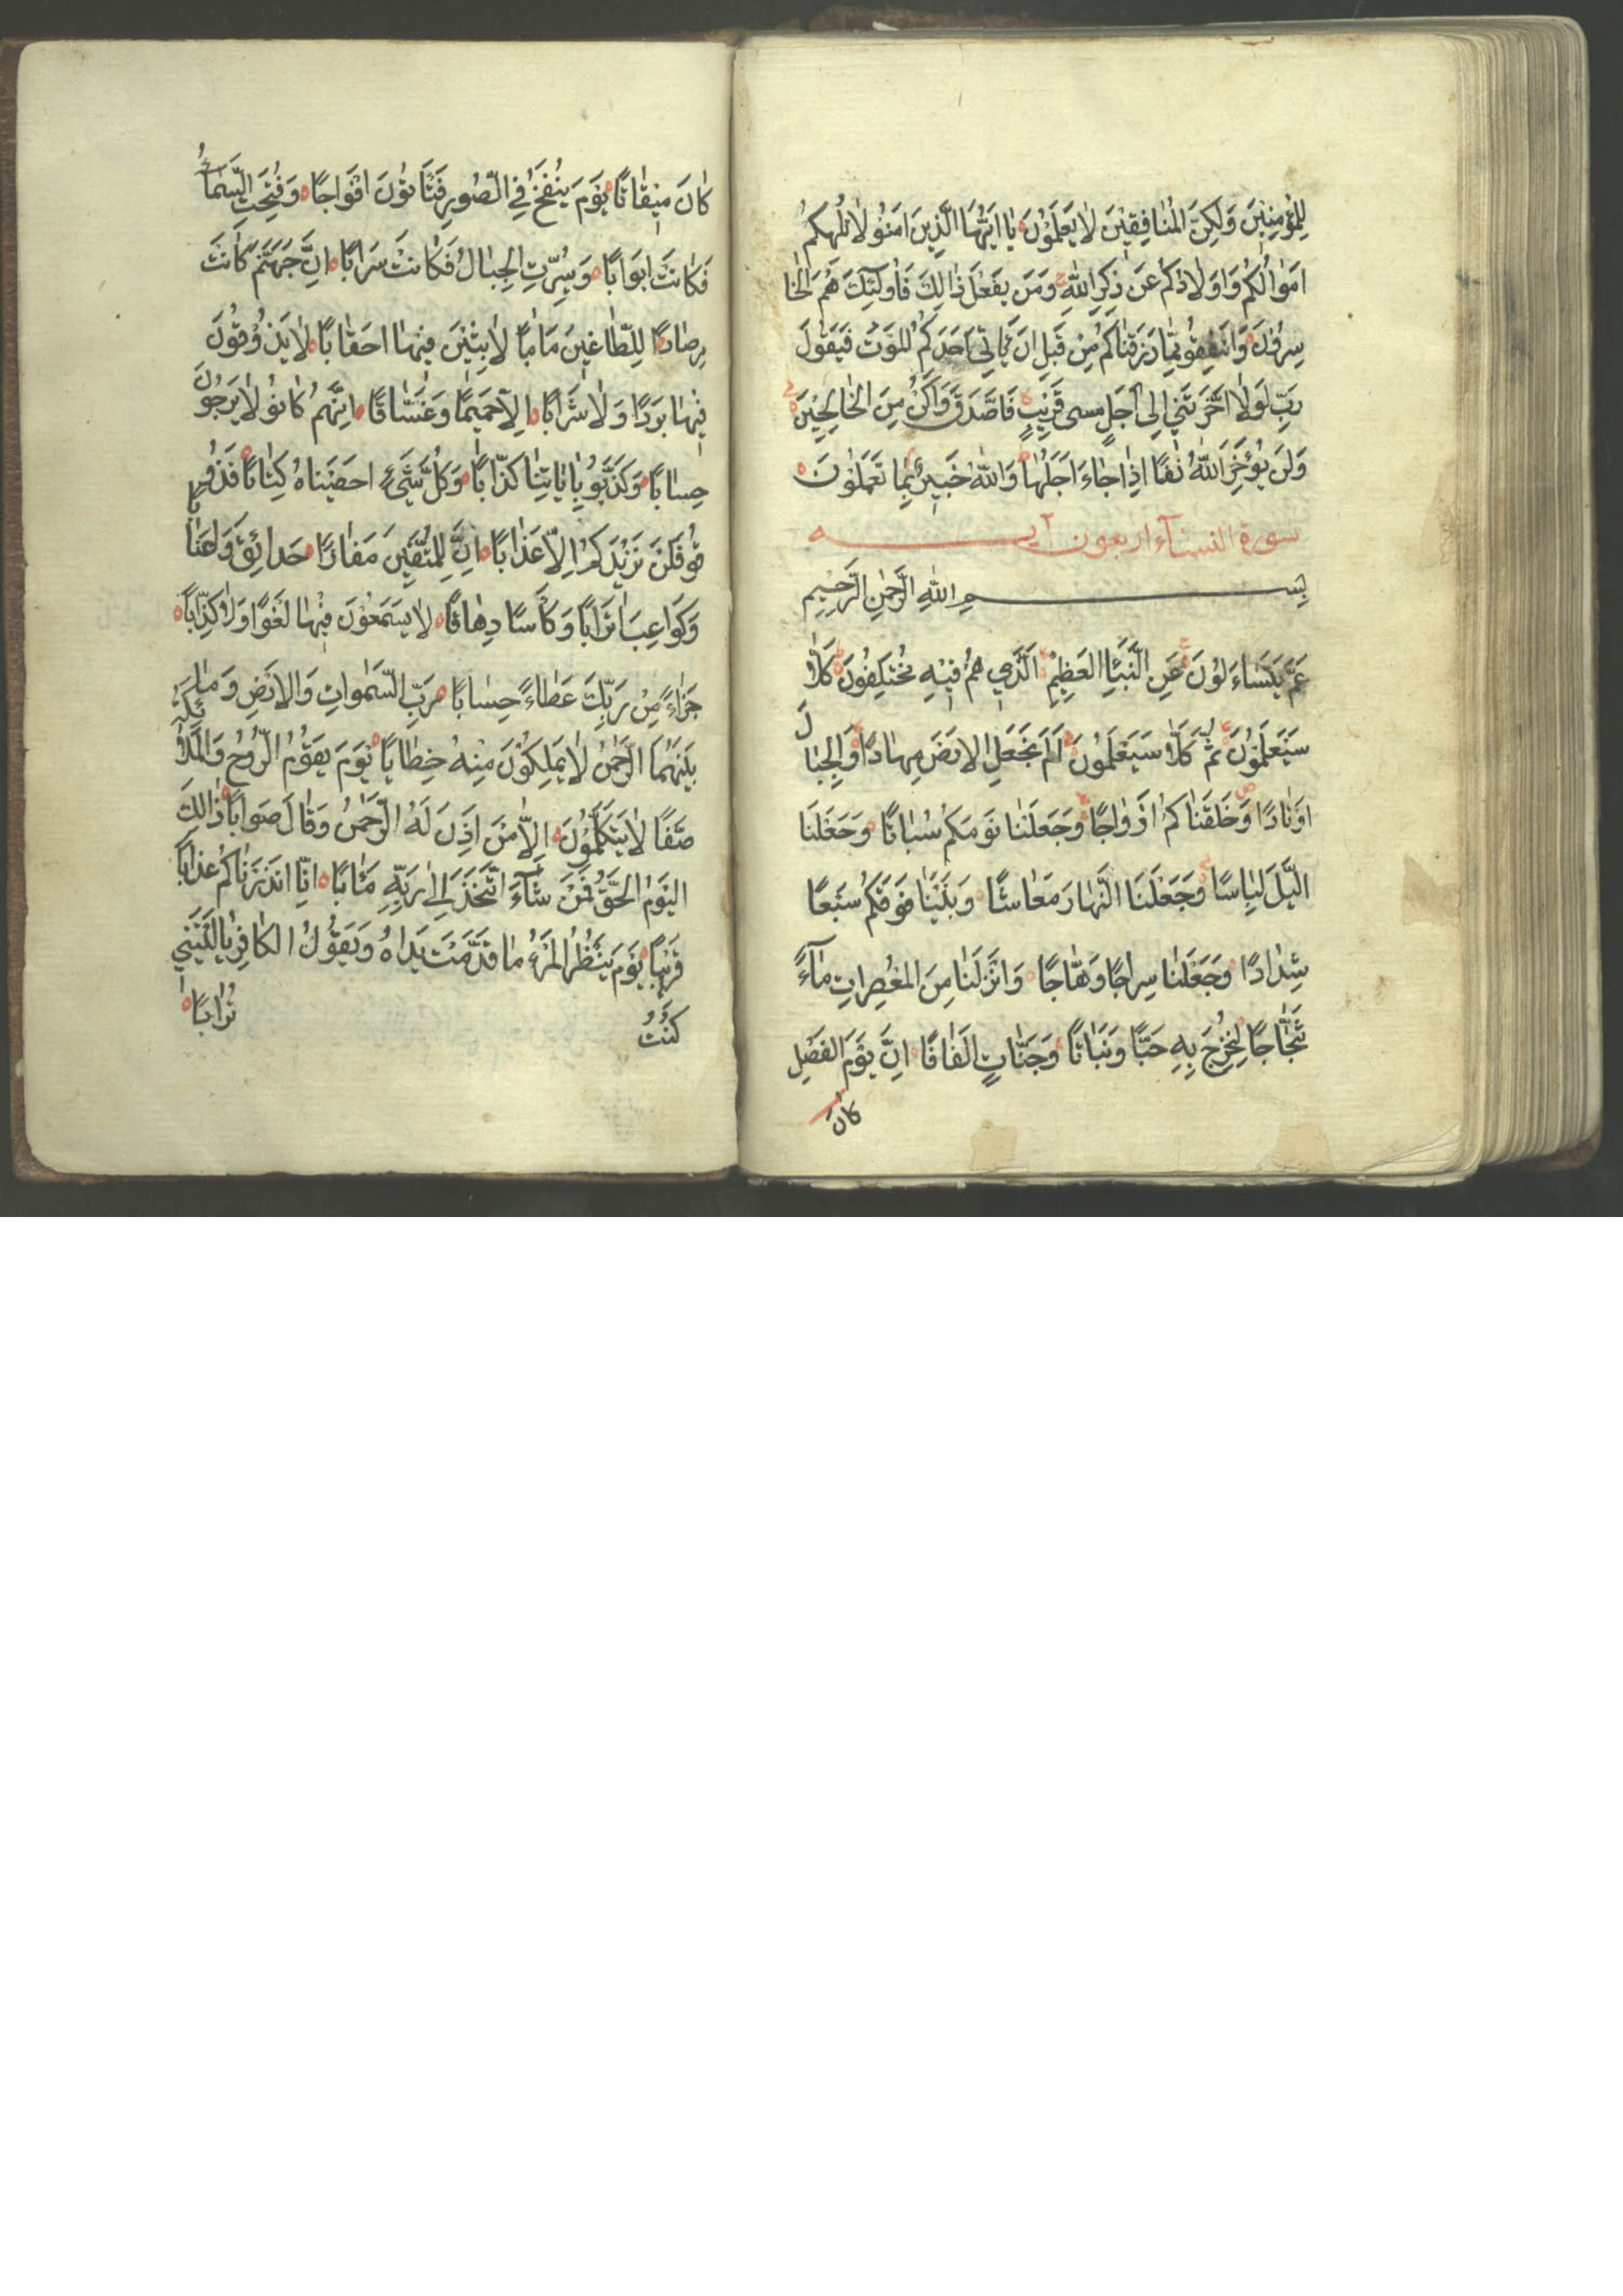 لِلْمُؤْمِنِينَ وَلَكِنَّ الْمُنَافِقِينَ لَا يَعْلَمُوْنَ يَا اَيُّهَا الَّذِينَ اٰمَنُو لَا تُلْهِكُمْ
اَمْوَالُكُمْ وَاَوْلَادُكُمْ عَنْ ذِكْرِ اللّٰهِ وَمَنْ يَفْعَلْ ذَالِكَ فَاُولَئِكَ هُمُ الْخَا
سِرُوْنَ وَاَنْفِقُو مِمَّا رَزَقْنَاكُمْ مِنْ قَبْلِ اَنْ يَاتِىَ اَحَدَكُمُ الْمَوْتُ فَيَقُولَ
رَبِّ لَوْلَا اَخَّرْتَنِي اِلٰى اَجَلٍ مسمى قَرِيْبٍ فَاَصَّدَّقَ وَاَكُنْ مِنَ الصَّالِحِيْنَ
وَلَنْ يُؤَخِّرَ اللّٰهُ نَفْسًا اِذَا جَاءَ اَجَلُهَا وَاللّٰهُ خَبِيرٌ بِمَا تَعْمَلُوْنَ
سورة النساء اربعون آيه
بِسْمِ اللّٰهِ الرَّحْمٰنِ الرَّحِيْمِ
عَمَّ يَتَسَاءَلُوْنَ عَنِ النَّبَإِ الْعَظِيْمِ الَّذِي هُمْ فِيْهِ مُخْتَلِفُوْنَ كَلَّا
سَيَعْلَمُوْنَ ثُمَّ كَلَّا سَيَعْلَمُوْنَ اَلَمْ نَجْعَلِ الْاَرْضَ مِهَادًا وَالْجِبَالَ
اَوْتَادًا وَخَلَقْنَاكُمْ اَزْوَاجًا وَجَعَلْنَا نَوْمَكُمْ سُبَاتًا وَجَعَلْنَا
الَّيْلَ لِبَاسًا وَجَعَلْنَا النَّهَارَ مَعَاشًا وَبَنَيْنَا فَوْقَكُمْ سَبْعًا
شِدَادًا وَجَعَلْنَا سِرَاجًا وَهَّاجًا وَاَنْزَلْنَا مِنَ الْمُعْصِرَاتِ مَآءً
ثَجَّاجًا لِنُخْرِجَ بِهِ حَبًّا وَنَبَاتًا وَجَنَّاتٍ اَلْفَافًا اِنَّ يَوْمَ الْفَصْلِ
كَانَ
كَانَ مِيْقَاتًا يَوْمَ يُنْفَخُ فِي الصُّوْرِ فَتَاتُوْنَ اَفْوَاجًا وَفُتِحَتِ السَّمَاءُ
فَكَانَتْ اَبْوَابًا وَسُيِّرَتِ الْجِبَالُ فَكَانَتْ سَرَابًا اِنَّ جَهَنَّمَ كَانَتْ
مِرْصَادًا لِلطَّاغِيْنَ مَاٰبًا لَابِثِيْنَ فِيْهَا اَحْقَابًا لَا يَذُوْقُوْنَ
فِيْهَا بَرْدًا وَلَا شَرَابًا اِلَّا حَمِيْمًا وَغَسَّاقًا اِنَّهُمْ كَانُو لَا يَرْجُوْنَ
حِسَابًا وَكَذَّبُو بِاٰيَاتِنَا كِذَّابًا وَكُلَّ شَيْءٍ اَحْصَيْنَاهُ كِتَابًا فَذُوْ
قُو فَلَنْ نَزِيْدَكُمْ اِلَّا عَذَابًا اِنَّ لِلْمُتَّقِيْنَ مَفَازًا حَدَائِقَ وَاَعْنَابًا
وَكَوَاعِبَ اَتْرَابًا وَكَاْسًا دِهَاقًا لَا يَسْمَعُوْنَ فِيْهَا لَغْوًا وَلَا كِذَّابًا
جَزَاءً مِنْ رَبِّكَ عَطَاءً حِسَابًا رَبِّ السَّمٰوَاتِ وَالْاَرْضِ وَمَا
بَيْنَهُمَا الرَّحْمٰنُ لَا يَمْلِكُوْنَ مِنْهُ خِطَابًا يَوْمَ يَقُوْمُ الرُّوْحُ وَالْمَلَائِكَةُ
صَفًّا لَا يَتَكَلَّمُوْنَ اِلَّا مَنْ اَذِنَ لَهُ الرَّحْمٰنُ وَقَالَ صَوَابًا ذَالِكَ
الْيَوْمُ الْحَقُّ فَمَنْ شَآءَ اتَّخَذَ اِلٰى رَبِّهِ مَاٰبًا اِنَّا اَنْذَرْنَاكُمْ عَذَابًا
قَرِيْبًا يَوْمَ يَنْظُرُ الْمَرْءُ مَا قَدَّمَتْ يَدَاهُ وَيَقُوْلُ الْكَافِرُ يَا لَيْتَنِي
كُنْتُ تُرَابًا